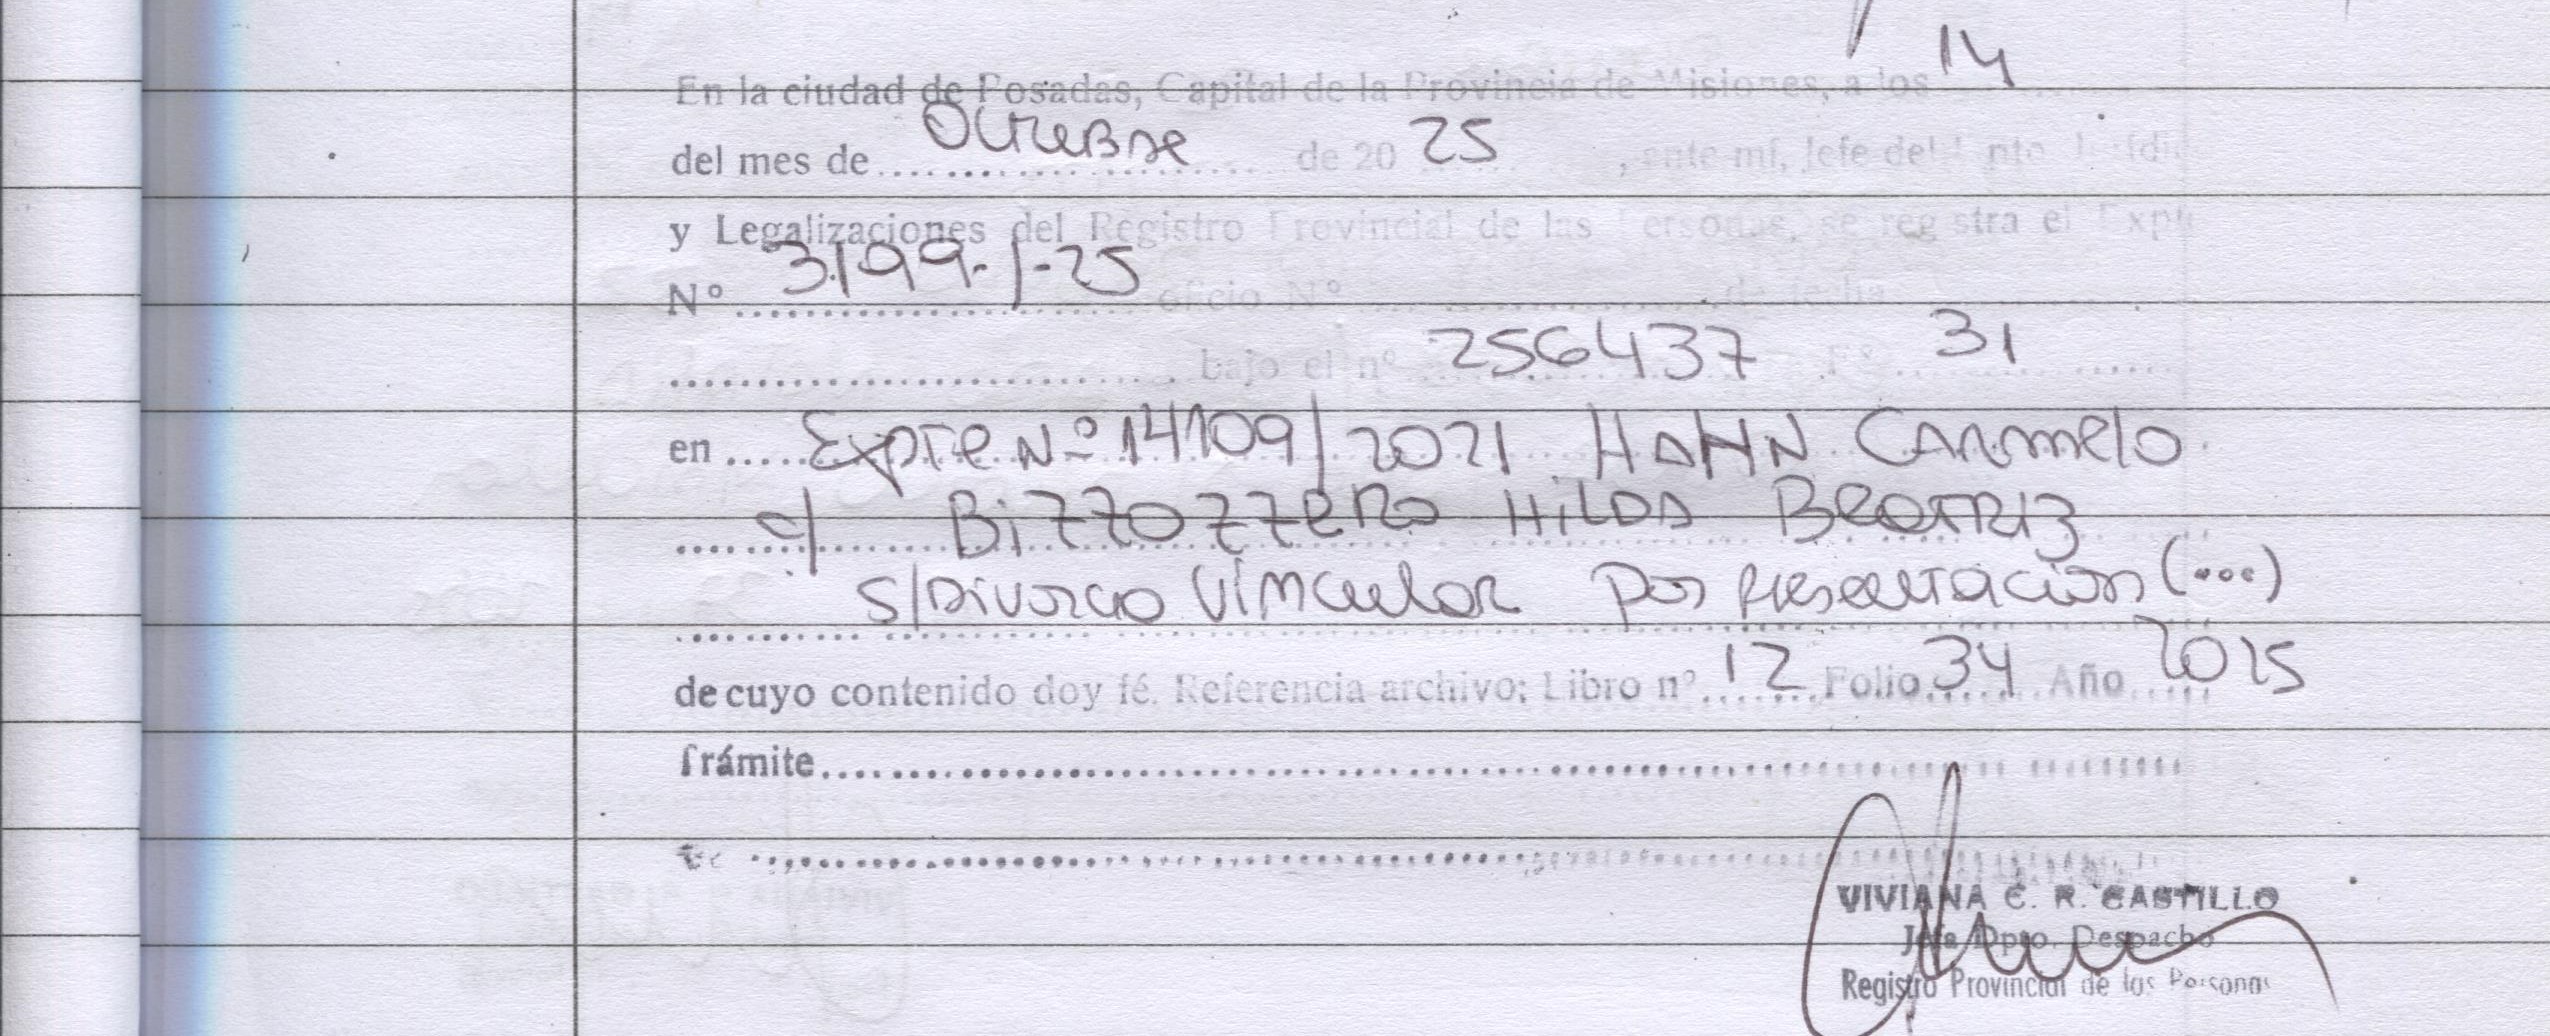 14
En la ciudad de Posadas, Capital de la Provincia de Misiones, a los
del mes de Octubre de 20 25, ante mí, Jefe del
y Legalizaciones del Registro Provincial de las Personas, se registra el Expte
Nº 3199-J-25 oficio Nº de fecha
bajo el nº 256437 Fº 31
en Expte Nº 14109/2021 HAHN CARMELO
c/ BIZZOZZERO HILDA BEATRIZ
S/DIVORCIO VINCULAR POR PRESENTACION (...)
de cuyo contenido doy fé. Referencia archivo: Libro nº 12 Folio 34 Año 2025
Trámite
VIVIANA C. R. CASTILLO
Jefa Dpto. Despacho
Registro Provincial de las Personas